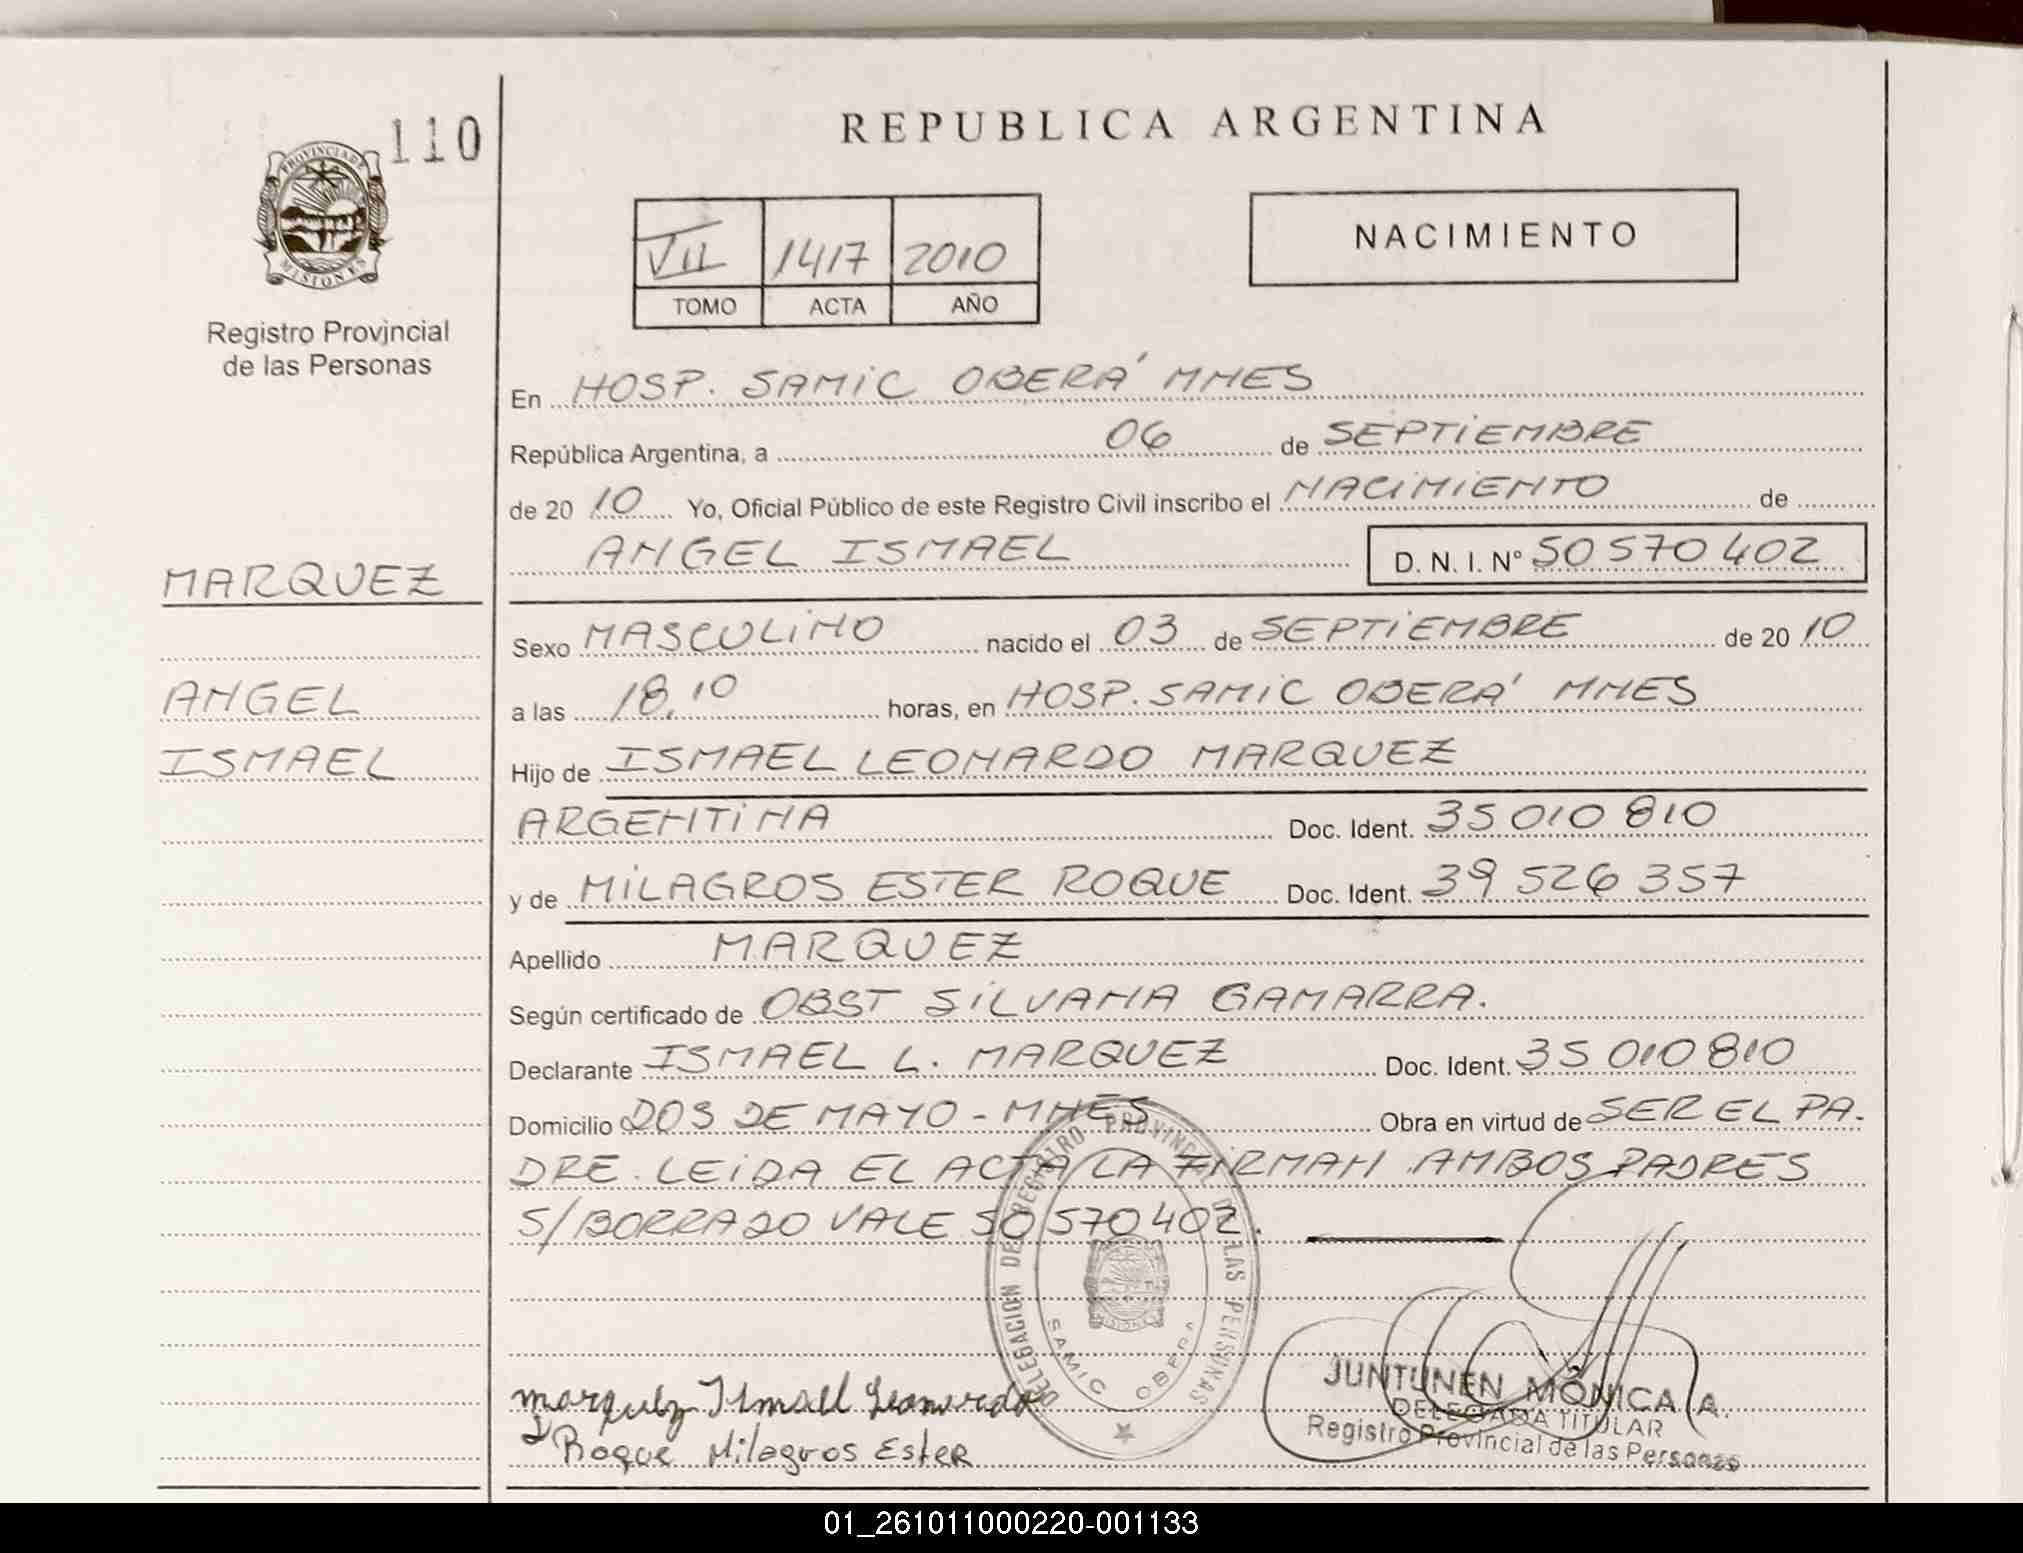 110
REPUBLICA ARGENTINA
PROVINCIA DE
MISIONES
VII 1417 2010
TOMO ACTA AÑO
NACIMIENTO
Registro Provincial
de las Personas
En HOSP. SAMIC OBERÁ MNES
República Argentina, a 06 de SEPTIEMBRE
de 20 10 Yo, Oficial Público de este Registro Civil inscribo el NACIMIENTO de
ANGEL ISMAEL D. N. I. N° 50 570 402
MARQUEZ
Sexo MASCULINO nacido el 03 de SEPTIEMBRE de 20 10
ANGEL
a las 18,10 horas, en HOSP. SAMIC OBERÁ MNES
ISMAEL
Hijo de ISMAEL LEONARDO MARQUEZ
ARGENTINA Doc. Ident. 35 010 810
y de MILAGROS ESTER ROQUE Doc. Ident. 39 526 357
Apellido MARQUEZ
Según certificado de OBST SILVANA GAMARRA.
Declarante ISMAEL L. MARQUEZ Doc. Ident. 35 010 810
Domicilio DOS DE MAYO - MNES Obra en virtud de SER EL PA-
DRE. LEIDA EL ACTA LA FIRMAN AMBOS PADRES
S/BORRADO VALE 50 570 402.
DELEGACION DEL REGISTRO PROVINCIAL DE LAS PERSONAS
MISIONES
SAMIC OBERA
Marquez Ismael Leonardo
Roque Milagros Ester
JUNTUNEN MÓNICA A.
DELEGADA TITULAR
Registro Provincial de las Personas
01_261011000220-001133